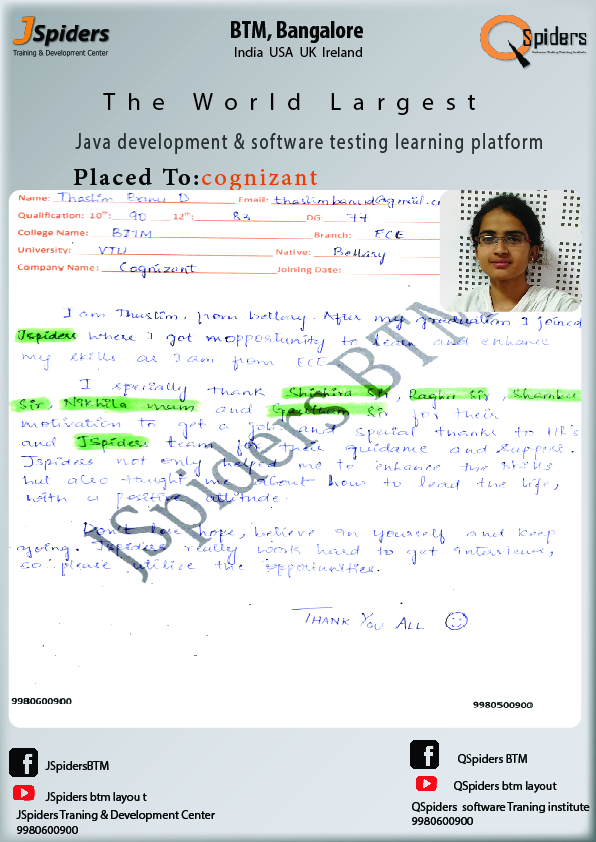 JSpiders
Training & Development Center
BTM, Bangalore
India USA UK Ireland
QSpiders
Software Testing Training Institute
The World Largest
Java development & software testing learning platform
Placed To:cognizant
Name: Thaslim Banu D Email: thaslimbanud@gmail.c
Qualification: 10th: 90 12th: 82 DG: 77
College Name: BITM Branch: ECE
University: VTU Native: Bellary
Company Name: Cognizant Joining Date:
I am Thaslim, from bellary. After my graduation I joined
Jspiders where I got opportunity to learn and enhance
my skills as I am from ECE.
I specially thank Shishira Sir, Raghu Sir, Shambu
Sir, Nikhila mam and Goutham Sir for their
motivation to get a job and special thanks to HR's
and JSpiders team for their guidance and support.
Jspiders not only helped me to enhance the skills
but also taught me about how to lead the life,
with a positive attitude.
Don't lose hope, believe in yourself and keep
going. Jspiders really work hard to get interviews,
so please utilize the opportunities.
THANK YOU ALL
JSpiders BTM
9980600900
9980500900
JSpidersBTM
JSpiders btm layou t
JSpiders Traning & Development Center
9980600900
QSpiders BTM
QSpiders btm layout
QSpiders software Traning institute
9980600900